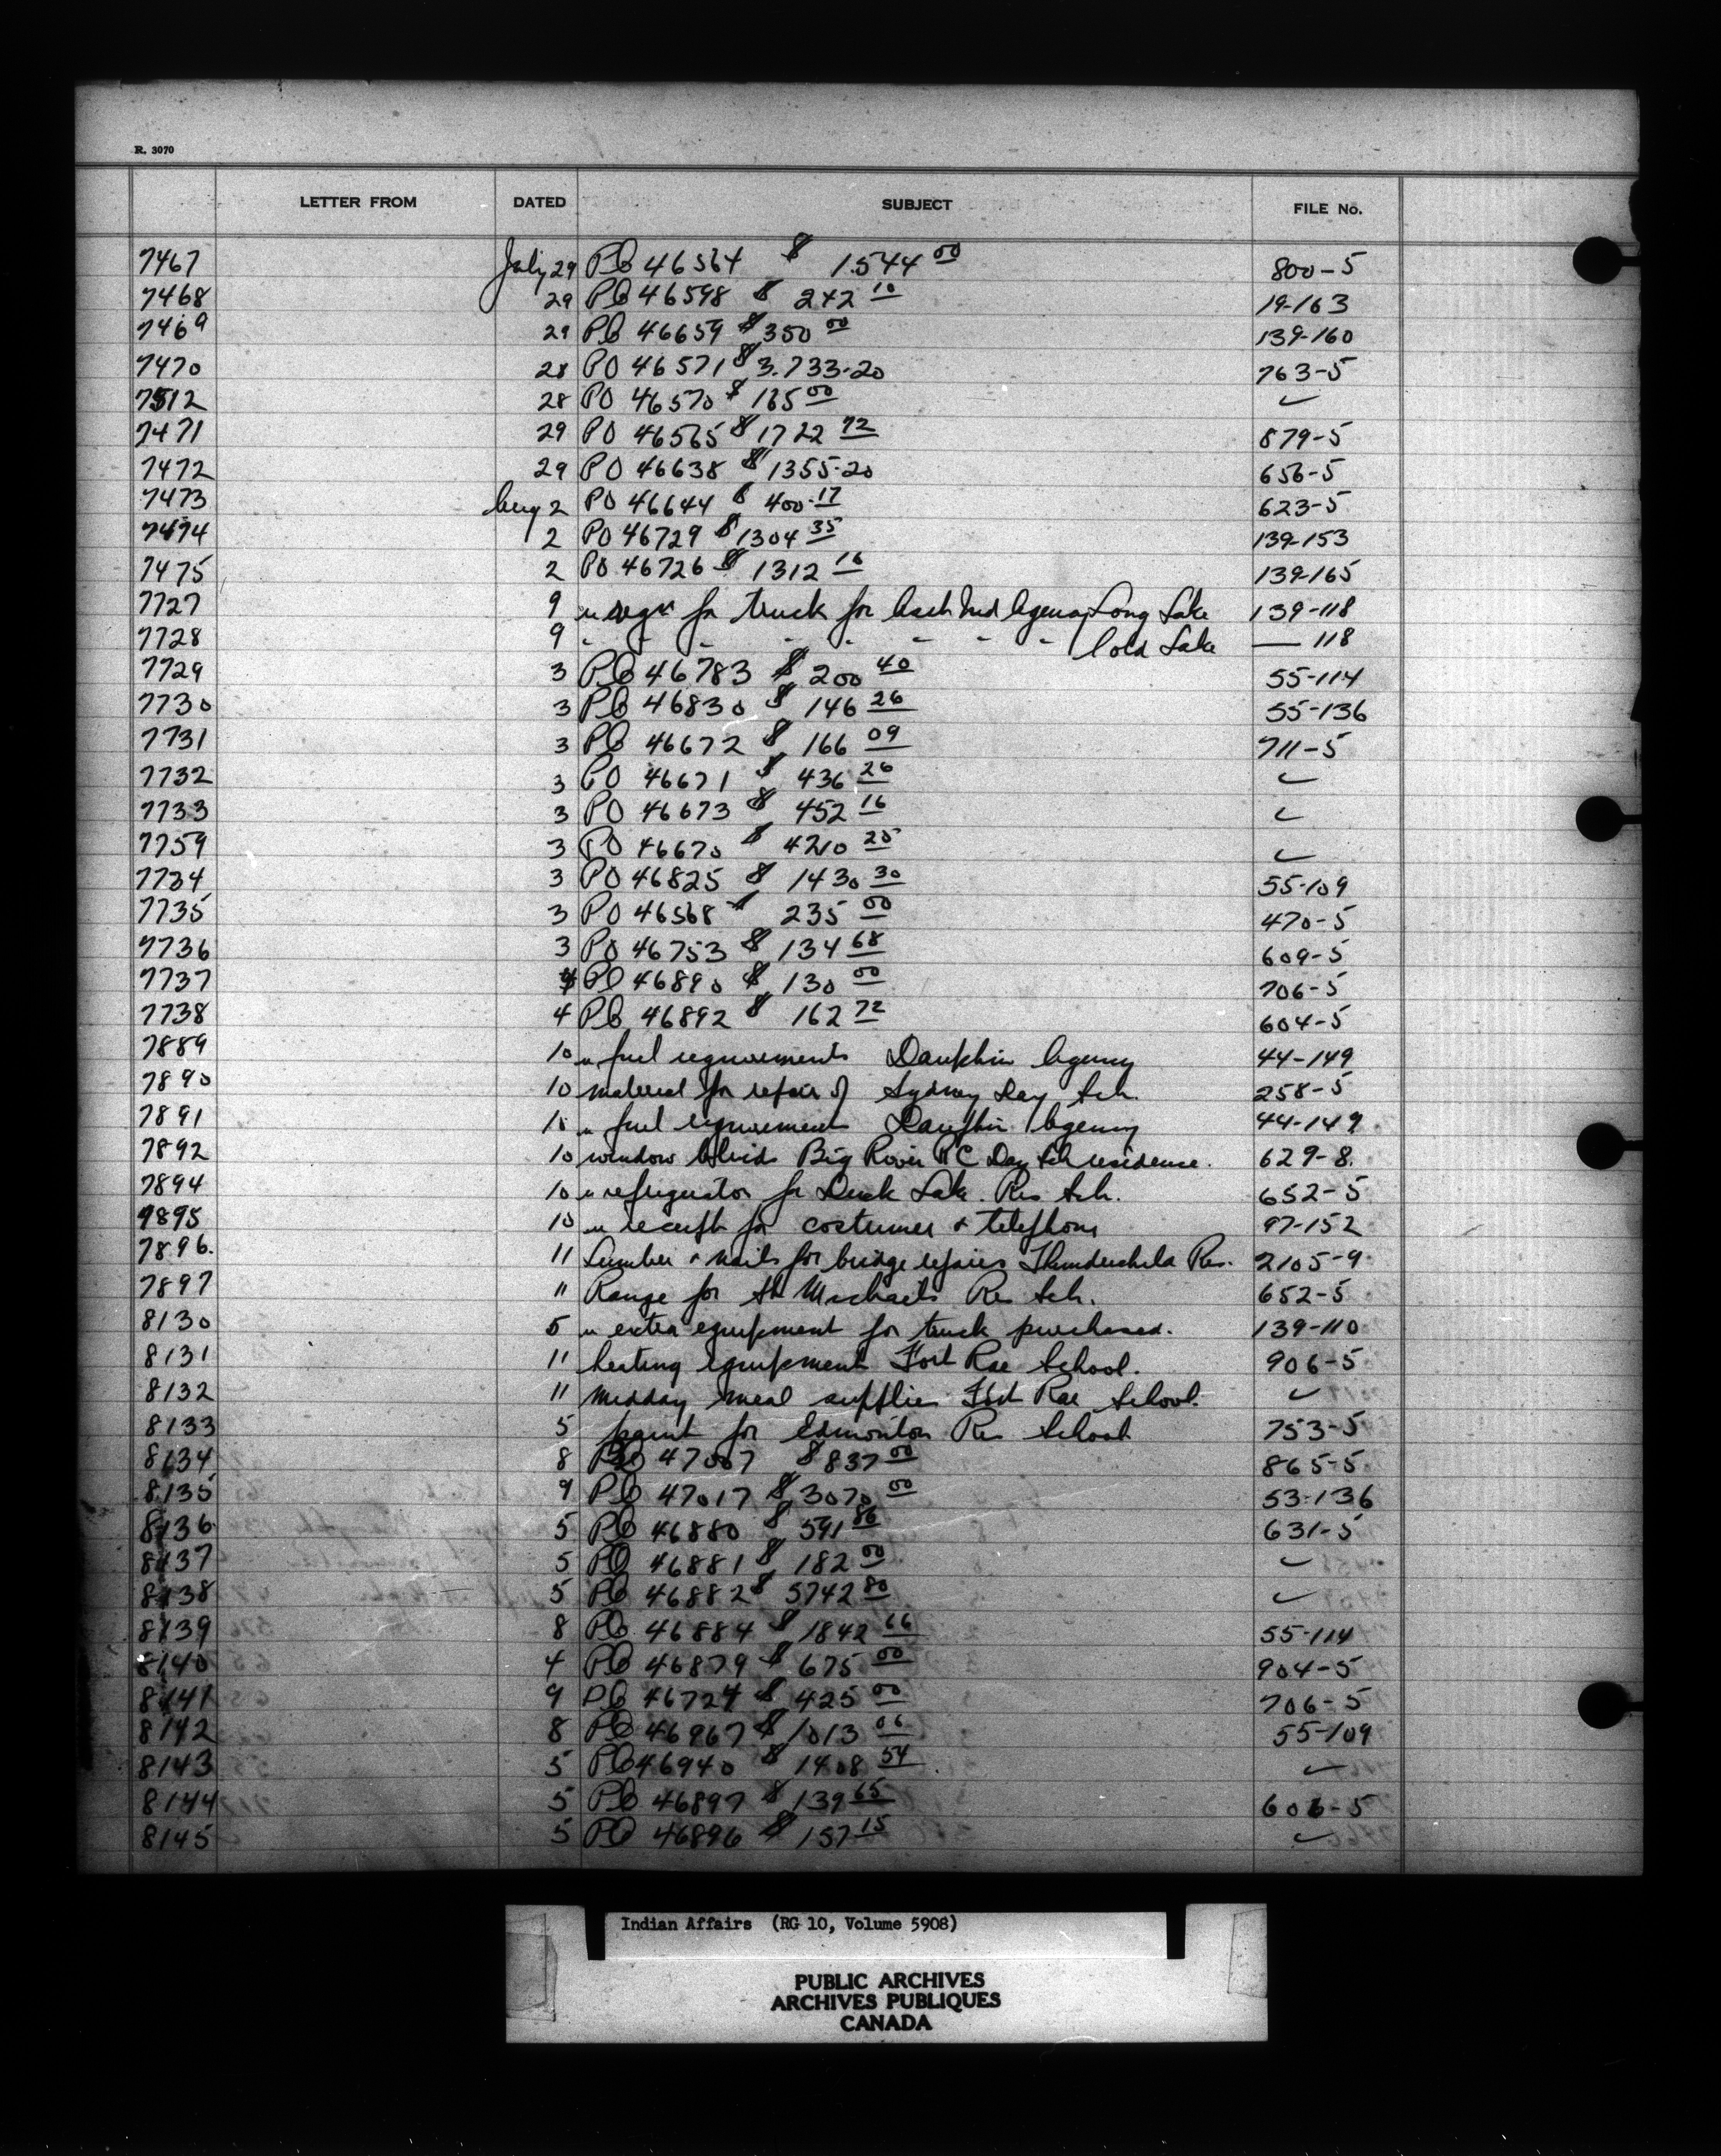 R. 3070
LETTER FROM DATED SUBJECT FILE No.
7467 July 29 PO 46564 $ 1544 00 800-5
7468 29 PO 46598 $ 242 10 19-163
7469 29 PO 46659 $ 350 00 139-160
7470 28 PO 46571 $ 3.733.20 763-5
7512 28 PO 46570 $ 165 00 ✓
7471 29 PO 46565 $ 1722 72 879-5
7472 29 PO 46638 $ 1355.20 656-5
7473 Aug 2 PO 46644 $ 400.17 623-5
7474 2 PO 46729 $ 1304 35 139-153
7475 2 PO 46726 $ 1312 16 139-165
7727 9 for truck for Ind Agency Long Lake 139-118
7728 9 " " " " " " " " Cold Lake — 118
7729 3 PO 46783 $ 200 40 55-114
7730 3 PO 46830 $ 146 26 55-136
7731 3 PO 46672 $ 166 09 711-5
7732 3 PO 46671 $ 436 26 ✓
7733 3 PO 46673 $ 452 16 ✓
7759 3 PO 46670 $ 4210 25 ✓
7734 3 PO 46825 $ 1430 30 55-109
7735 3 PO 46568 $ 235 00 470-5
7736 3 PO 46753 $ 134 68 609-5
7737 4 PO 46890 $ 130 00 706-5
7738 4 PO 46892 $ 162 72 604-5
7889 10 " fuel requirements Dauphin Agency 44-149
7890 10 material for repair of Sydney Day Sch. 258-5
7891 10 " fuel requirements Dauphin Agency 44-149
7892 10 window blinds Big River RC Day Sch residence. 629-8
7894 10 " refrigerator for Duck Lake Res Sch. 652-5
9895 10 " receipt for costumer & telephone 97-152
7896. 11 Lumber & nails for bridge repairs Thunderchild Res. 2105-9
7897 11 Range for St Michaels Res Sch. 652-5
8130 5 " extra equipment for truck purchased. 139-110
8131 11 heating equipment Fort Rae School. 906-5
8132 11 midday meal supplies Fort Rae School. ✓
8133 5 paint for Edmonton Res School 753-5
8134 8 PO 47007 $ 837 00 865-5
8135 9 PO 47017 $ 3070 00 53-136
8136 5 PO 46880 $ 591 86 631-5
8137 5 PO 46881 $ 182 00 ✓
8138 5 PO 46882 $ 5742 80 ✓
8139 8 PO 46884 $ 1842 66 55-114
8140 4 PO 46879 $ 675 00 904-5
8141 9 PO 46724 $ 425 00 706-5
8142 8 PO 46967 $ 1013 06 55-109
8143 5 PO 46940 $ 1408 54 ✓
8144 5 PO 46897 $ 139 65 606-5
8145 5 PO 46896 $ 157 15 ✓
Indian Affairs (RG 10, Volume 5908)
PUBLIC ARCHIVES
ARCHIVES PUBLIQUES
CANADA